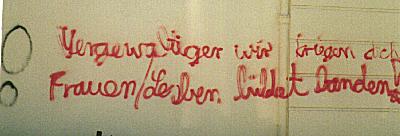 Vergewaltiger wir kriegen dich
Frauen/Lesben bildet Banden